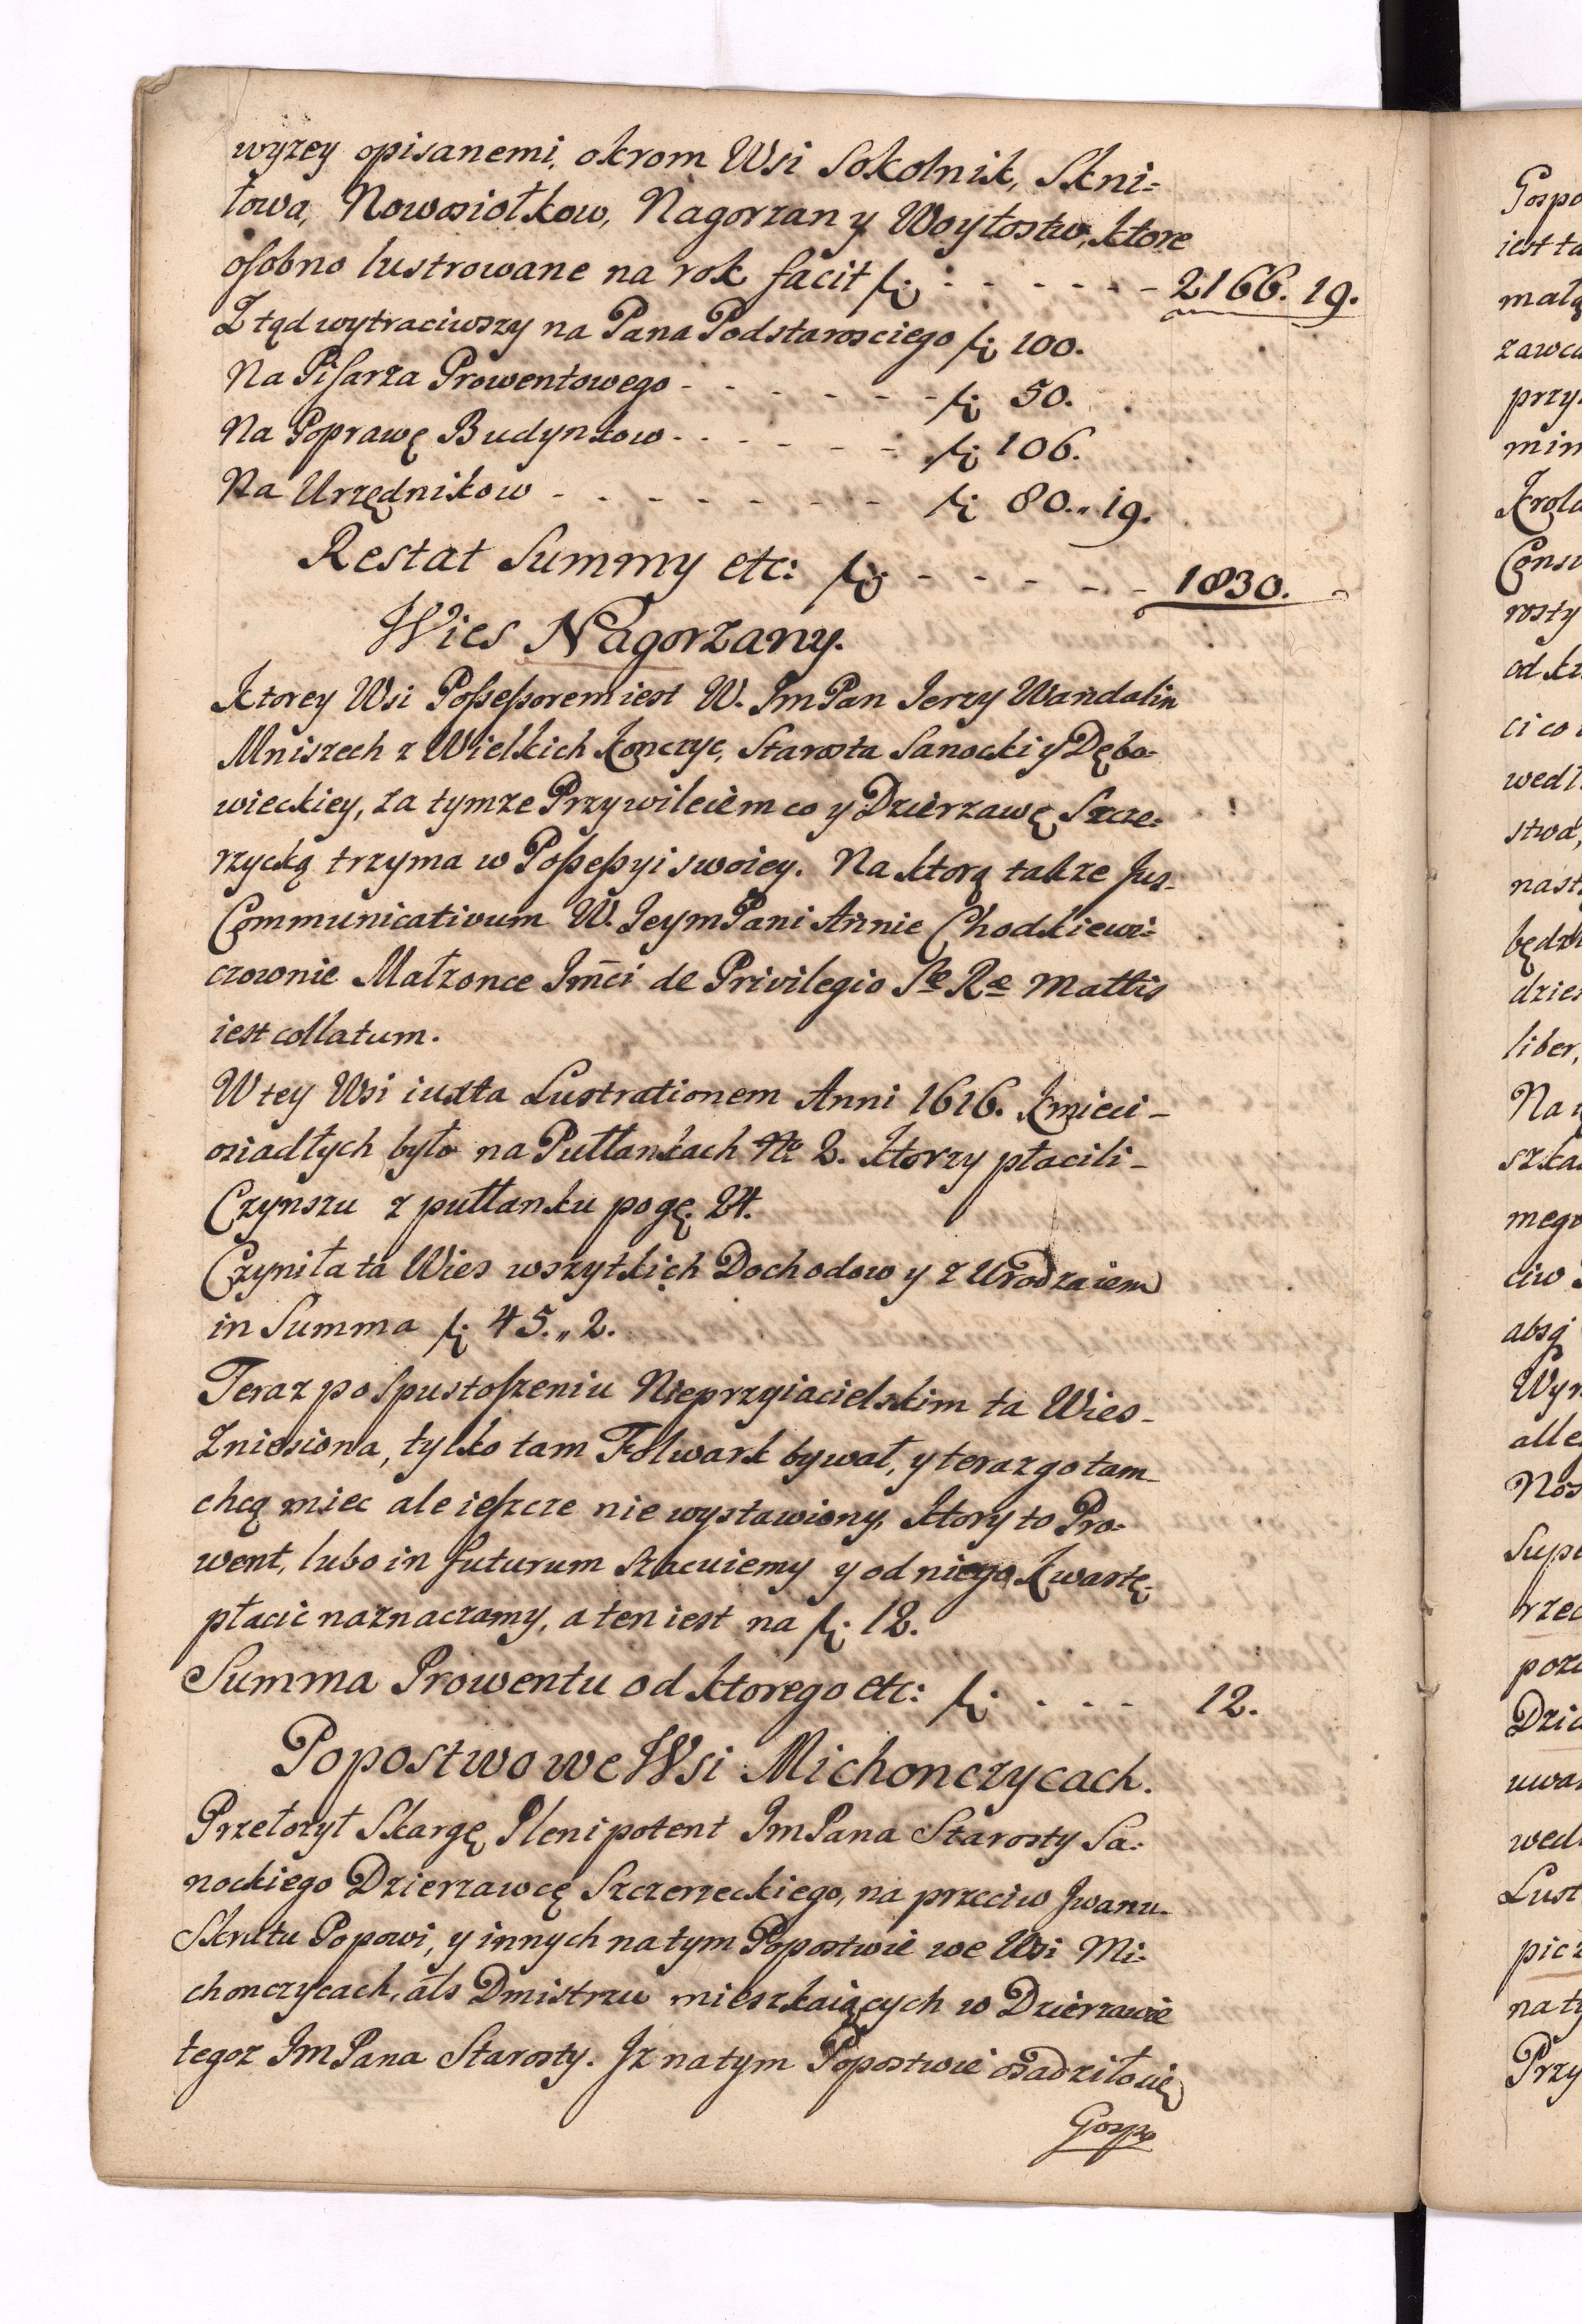 wyzey opisanemi, okrom Wsi Sokolnik, Skni=
łowa, Nowosiołkow, Nagorzan y Woytostw, ktore
osobno lustrowane na rok facit fl: - - - - - - 2166. 19.
Ztąd wytraciwszy na Pana Podstarosciego fl: 100.
Na Pisarza Prowentowego - - - - - - fl: 50.
Na Poprawę Budynkow - - - - - fl: 106.
Na Urzędnikow - - - - - - - - fl: 80.,, 19.
Restat Summy etc: fl: - - - - - 1830.
Wies Nagorzany.
Ktorey Wsi Poßeßorem iest W. Jm Pan Jerzy Wandalin
Mniszech z Wielkich Kończyc, Starosta Sanocki y Dębo=
wieckiey, za tymze Przywileiem co y Dzierzawę Szcze=
rzycką trzyma w Poßeßyi swoiey. Na ktorą także Jus
Communicativum W. Jeym Pani Annie Chodkiewi=
czownie Małzonce Jm̃ci de Privilegio Sæ Ræ Mattis
iest collatum.
W tey Wsi iuxta Lustrationem Anni 1616. Kmieci -
osiadłych było na Pułłankach No 2. ktorzy płacili -
Czynszu z pułłanku po gę. 24.
Czyniła ta Wies wszytkich Dochodow y z Urodzaiem
in Summa fl: 45.,, 2.
Teraz po spustoszeniu Nieprzyiacielskim ta Wies -
Zniesiona, tylko tam Folwark bywał, y teraz go tam -
chcą miec ale ieszcze nie wystawiony, ktory to Pro=
went, lubo in futurum szacuiemy y od niego Kwartę
płacic naznaczamy, a ten iest na fl: 12.
Summa Prowentu od ktorego etc: fl: - - - 12.
Popostwo we Wsi Michonczycach.
Przełozył Skargę Plenipotent Jm Pana Starosty Sa=
nockiego Dzierzawcę Szczerzeckiego, na przeciw Jwanu
Popowi, y innych na tym Popostwie we Wsi Mi=
chonczycach, als Dmistrzu mieszkaiących w Dzierzawie
tegoz Jm Pana Starosty. Jz na tym Popostwie osadziło się
Gospo